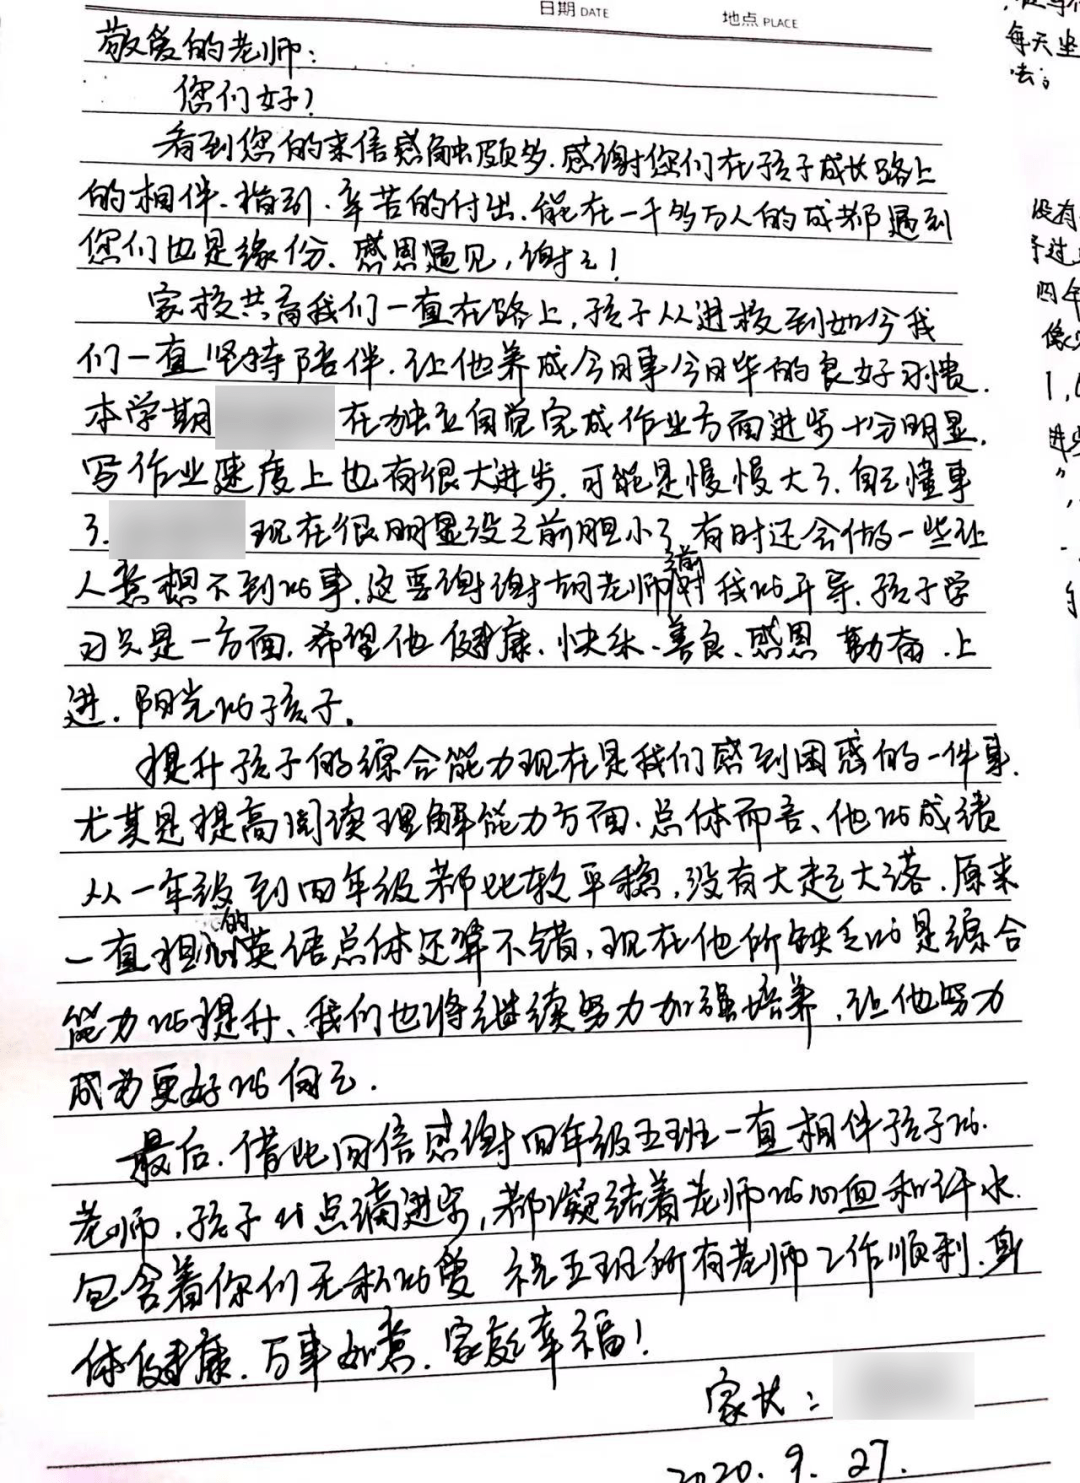 日期 DATE 地点 PLACE
敬爱的老师：
您们好！
看到您的来信感触颇多.感谢您们在孩子成长路上
的相伴.指引.辛苦的付出.能在一千多万人的成都遇到
您们也是缘份.感恩遇见,谢谢！
家校共育我们一直在路上,孩子从进校到如今我
们一直坚持陪伴.让他养成今日事今日毕的良好习惯.
本学期 在独立自觉完成作业方面进步十分明显.
写作业速度上也有很大进步.可能是慢慢大了.自己懂事
了. 现在很明显没之前胆小了.有时还会做一些让
人意想不到的事.这要谢谢胡老师之前对我的开导.孩子学
习只是一方面.希望他健康.快乐.善良.感恩 勤奋.上
进.阳光的孩子.
提升孩子的综合能力现在是我们感到困惑的一件事.
尤其是提高阅读理解能力方面.总体而言、他的成绩
从一年级到四年级都比较平稳,没有大起大落.原来
一直担心的英语总体还算不错,现在他所缺乏的是综合
能力的提升、我们也将继续努力加强培养,让他努力
成为更好的自己.
最后.借此回信感谢四年级五班一直相伴孩子的.
老师.孩子的点滴进步,都凝结着老师的心血和汗水.
包含着你们无私的爱 祝五班所有老师工作顺利.身
体健康.万事如意.家庭幸福！
家长：
2020.9.27.
每天坐
去；
没有
四年
像
1,
进步